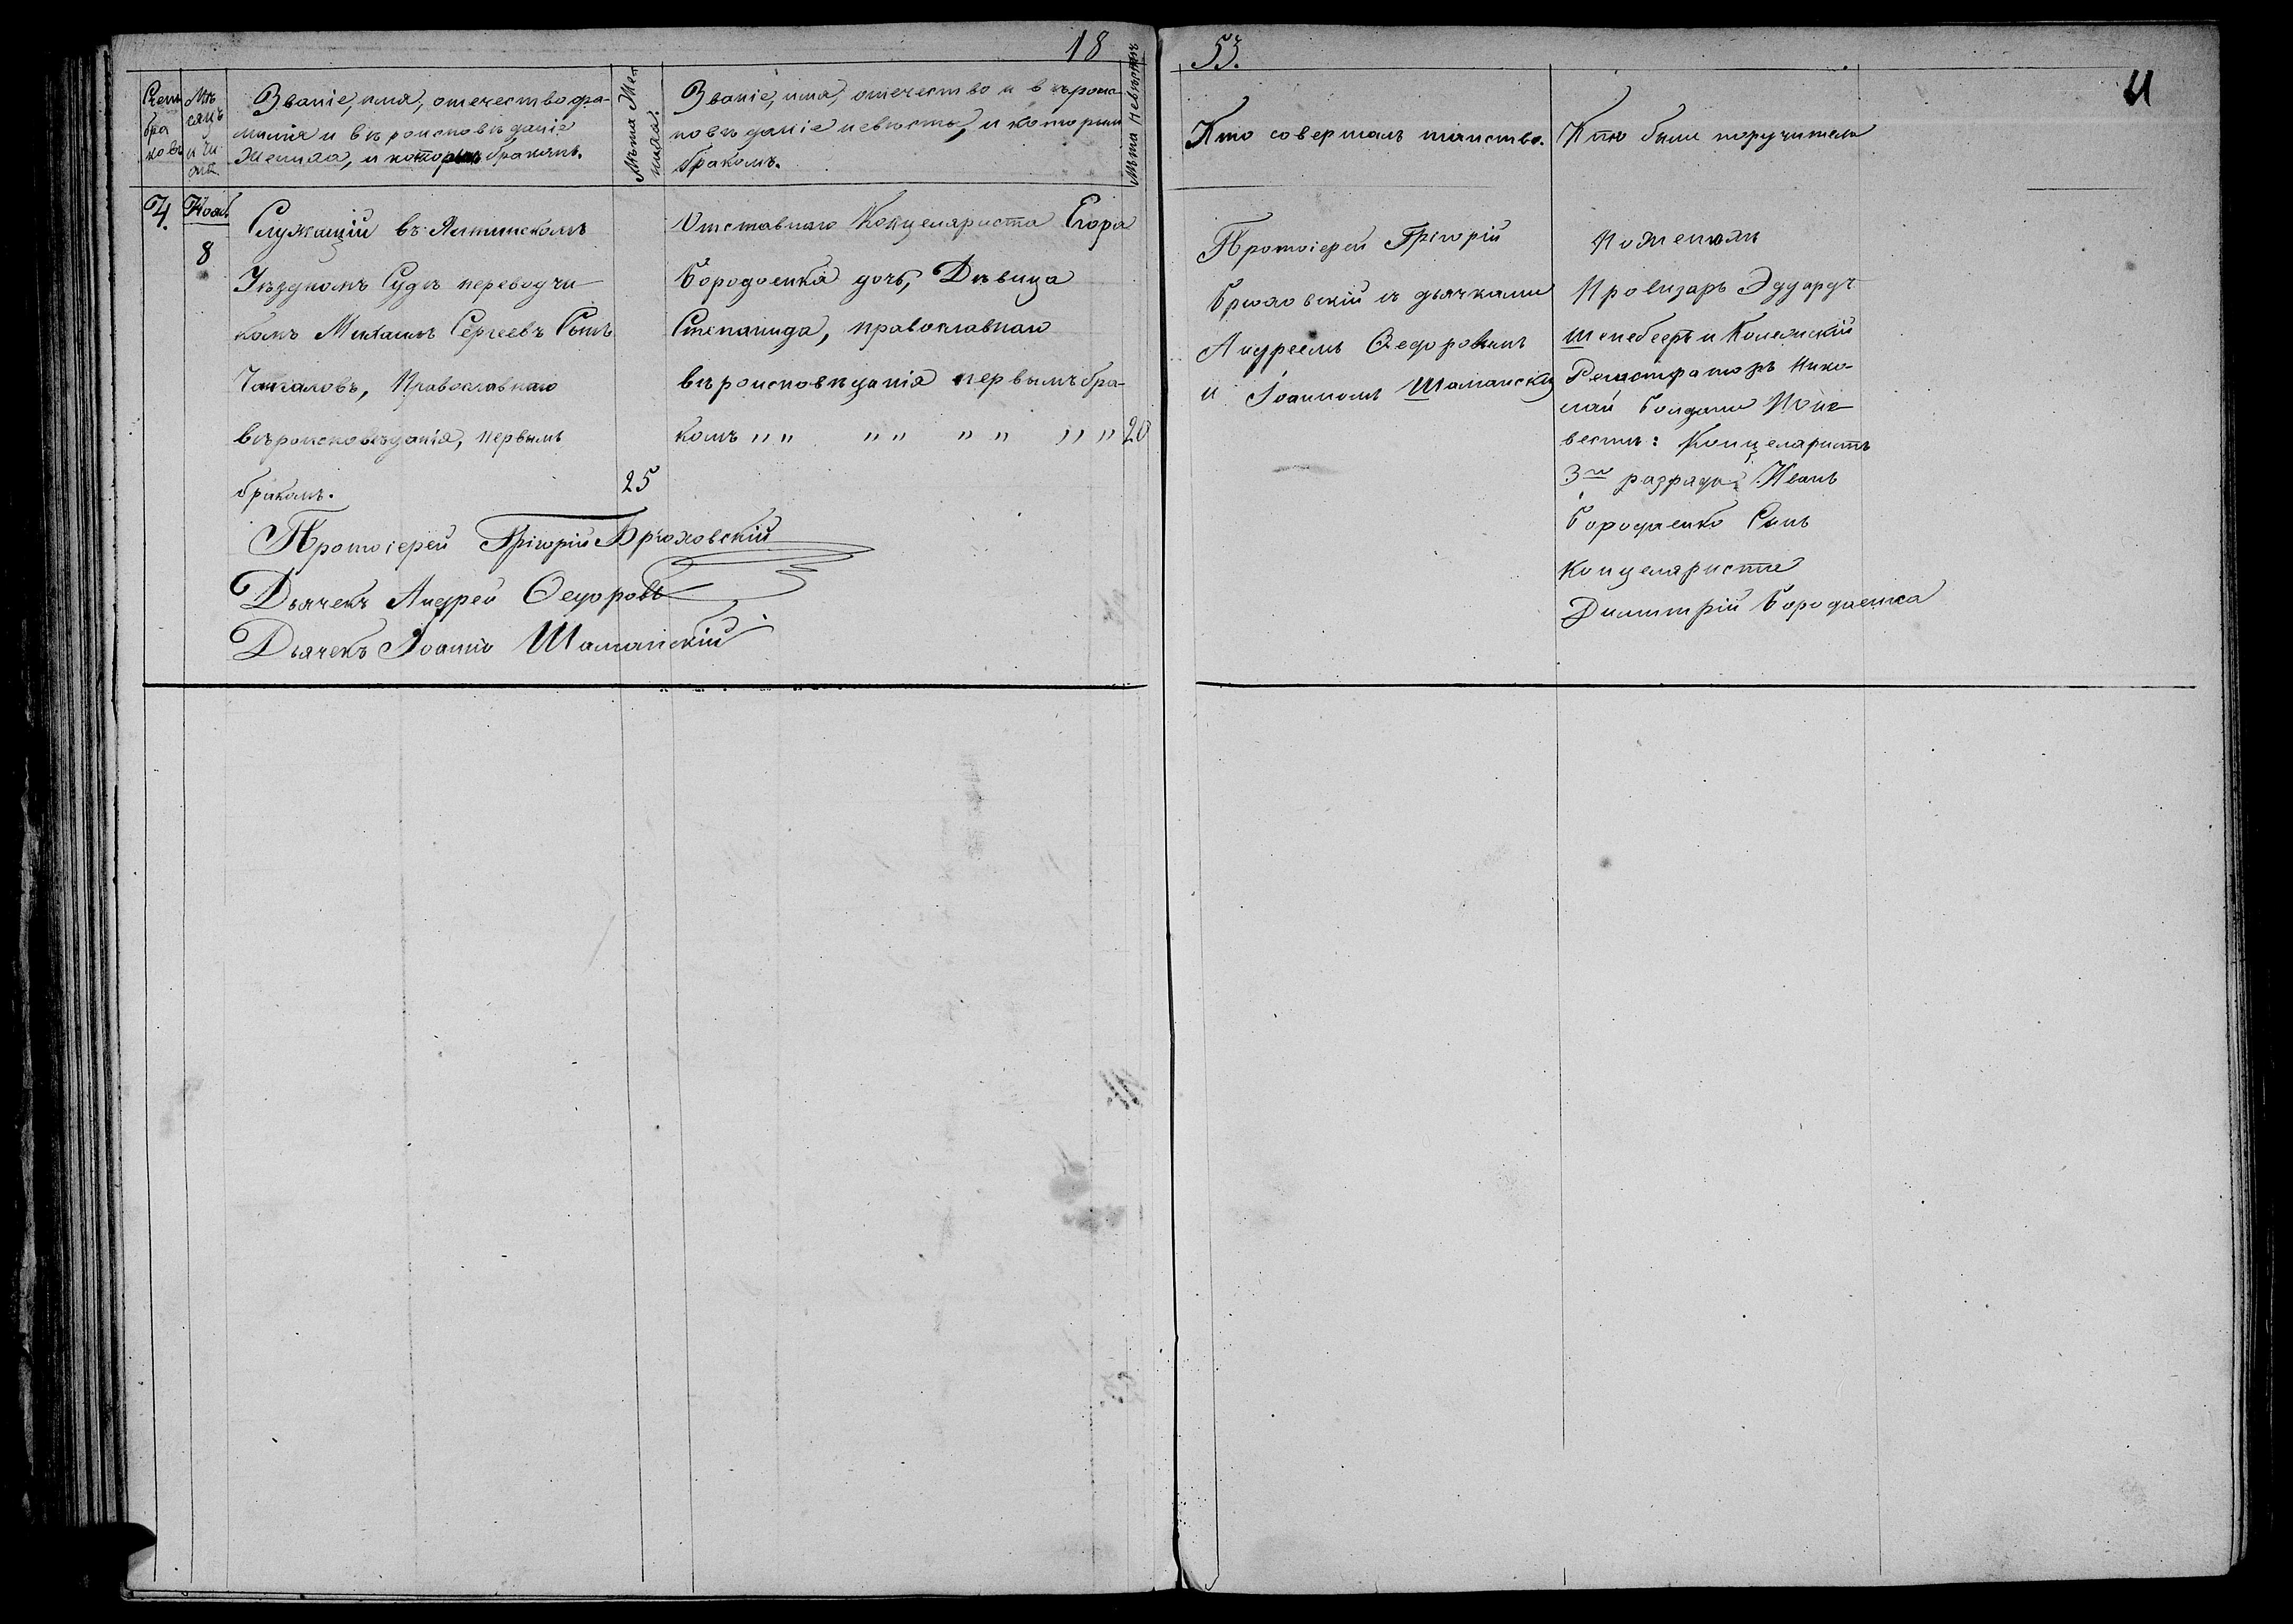 18
53.
Счетъ браковъ
Мѣсяцъ и число
Званіе, имя, отечество фа-
милія и вѣроисповѣданіе
Жениха, и которымъ бракомъ.
Лѣта Же-
ниха.
Званіе, имя, отечество и вѣроис-
повѣданіе невѣсты, и которым
бракомъ.
Лѣта Невѣсты
Кто совершалъ таинство.
Кто были поручители
4.
Нояб
8
Служащій въ
Уѣздномъ Судѣ переводчи-
комъ Михаилъ Сергеевъ Сынъ
Православнаго
вѣроисповѣданія, первымъ
бракомъ.
25
Протоіерей Григорій Брюховскій
Дьячекъ Андрей Ѳедоровъ
Дьячекъ Іоаннъ Шаманскій
Отставнаго Канцеляриста Егора
Бородаенка дочь, Дѣвица
Степанида, православнаго
вѣроисповѣданія первымъ бра-
комъ „ „ „ „ „ „ „ „ 20
Протоіерей Григорій
Брюховскій съ дьячками
Андреемъ Ѳедоровымъ
и Іоанномъ Шаманским
По женихѣ
Провизаръ Эдуардъ
и Колежскій
Регистраторъ Нико-
лай
вестѣ: Канцеляристъ
3го разряда Иванъ
Бородаенко Сынъ
Канцеляриста
Димитрій Бородаенка